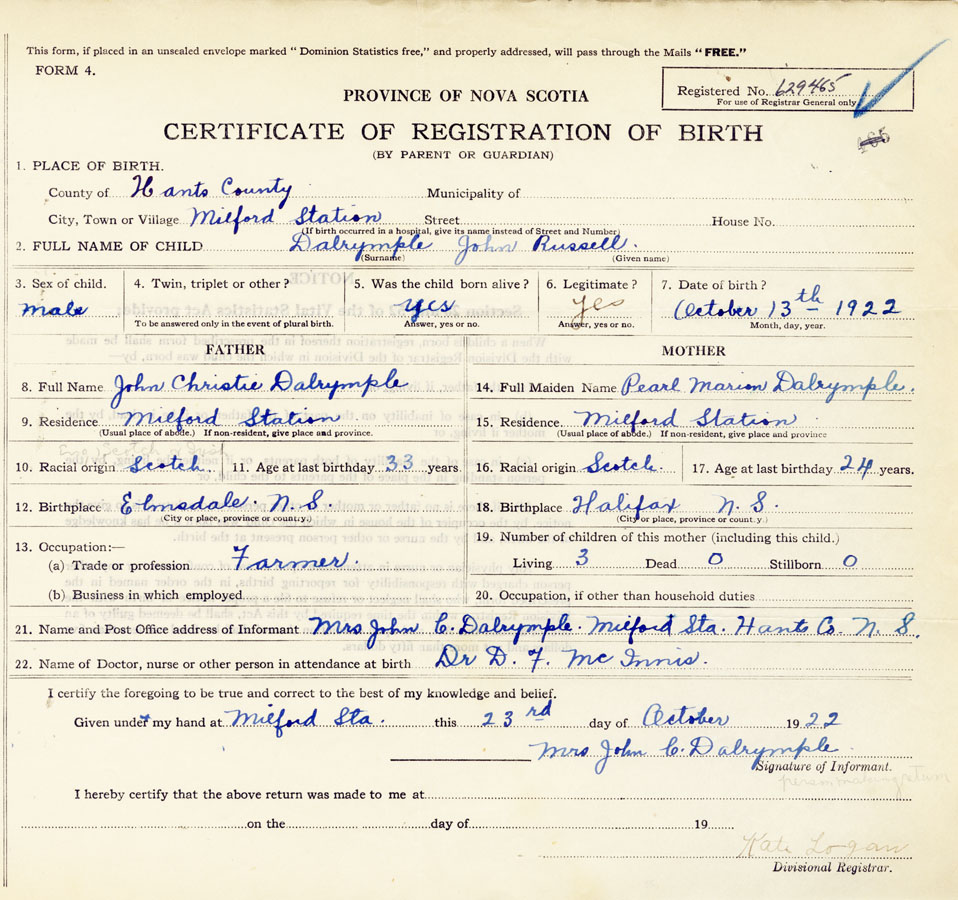 This form, if placed in an unsealed envelope marked "Dominion Statistics free," and properly addressed, will pass through the Mails "FREE."
FORM 4.
Registered No. 629465
For use of Registrar General only
PROVINCE OF NOVA SCOTIA
CERTIFICATE OF REGISTRATION OF BIRTH
(BY PARENT OR GUARDIAN)
1. PLACE OF BIRTH.
County of Hants County Municipality of
City, Town or Village Milford Station Street House No.
(If birth occurred in a hospital, give its name instead of Street and Number)
2. FULL NAME OF CHILD Dalrymple John Russell.
(Surname) (Given name)
3. Sex of child. 4. Twin, triplet or other? 5. Was the child born alive? 6. Legitimate? 7. Date of birth?
male yes yes October 13th 1922
To be answered only in the event of plural birth. Answer, yes or no. Answer, yes or no. Month, day, year.
FATHER MOTHER
8. Full Name John Christie Dalrymple 14. Full Maiden Name Pearl Marion Dalrymple.
9. Residence Milford Station 15. Residence. Milford Station
(Usual place of abode.) If non-resident, give place and province. (Usual place of abode.) If non-resident, give place and province
10. Racial origin Scotch. 11. Age at last birthday 33 years 16. Racial origin Scotch. 17. Age at last birthday 24 years.
12. Birthplace Elmsdale. N.S. 18. Birthplace Halifax N.S.
(City or place, province or country.) (City or place, province or country.)
13. Occupation:— 19. Number of children of this mother (including this child.)
(a) Trade or profession Farmer. Living 3 Dead 0 Stillborn 0
(b) Business in which employed 20. Occupation, if other than household duties
21. Name and Post Office address of Informant Mrs John C. Dalrymple. Milford Sta. Hants Co. N.S.
22. Name of Doctor, nurse or other person in attendance at birth Dr D. F. McInnis.
I certify the foregoing to be true and correct to the best of my knowledge and belief.
Given under my hand at Milford Sta. this 23rd day of October 1922
Mrs John C. Dalrymple
Signature of Informant.
person making return
I hereby certify that the above return was made to me at
on the day of 19
Kate Logan
Divisional Registrar.